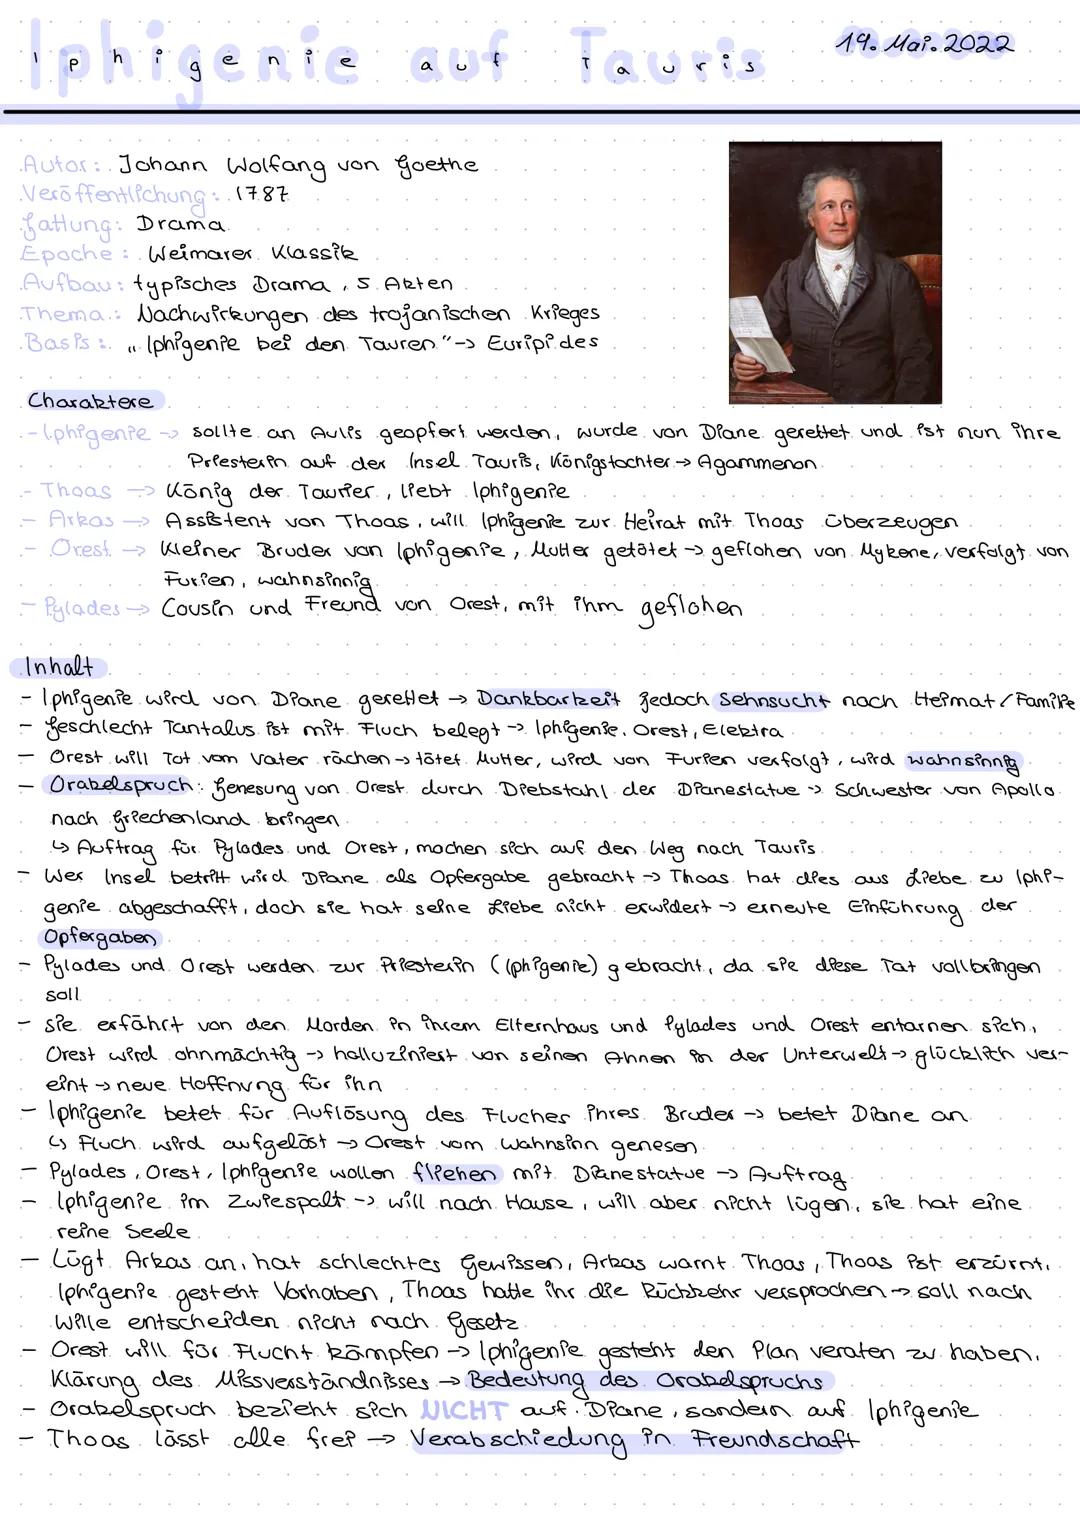 Iphigenie auf Tauris
19. Mai. 2022
Autor: Johann Wolfang von Goethe
Veröffentlichung: 1787
Gattung: Drama
Epoche: Weimarer Klassik
Aufbau: typisches Drama, 5 Akten
Thema: Nachwirkungen des trojanischen Krieges
Basis: "Iphigenie bei den Tauren" -> Euripides
Charaktere
- Iphigenie -> sollte an Aulis geopfert werden, wurde von Diane gerettet und ist nun ihre
Priesterin auf der Insel Tauris, Königstochter -> Agammenon
- Thoas -> König der Taurier, liebt Iphigenie
- Arkas -> Assistent von Thoas, will Iphigenie zur Heirat mit Thoas überzeugen
- Orest -> Kleiner Bruder von Iphigenie, Mutter getötet -> geflohen von Mykene, verfolgt von
Furien, wahnsinnig
- Pylades -> Cousin und Freund von Orest, mit ihm geflohen
Inhalt
- Iphigenie wird von Diane gerettet -> Dankbarkeit jedoch Sehnsucht nach Heimat / Familie
- Geschlecht Tantalus ist mit Fluch belegt -> Iphigenie, Orest, Elektra
- Orest will Tot vom Vater rächen -> tötet Mutter, wird von Furien verfolgt, wird wahnsinnig
- Orakelspruch: Genesung von Orest durch Diebstahl der Dianestatue -> Schwester von Apollo
nach Griechenland bringen
↳ Auftrag für Pylades und Orest, machen sich auf den Weg nach Tauris
- Wer Insel betritt wird Diane als Opfergabe gebracht -> Thoas hat dies aus Liebe zu Iphi-
genie abgeschafft, doch sie hat seine Liebe nicht erwidert -> erneute Einführung der
Opfergaben
- Pylades und Orest werden zur Priesterin (Iphigenie) gebracht, da sie diese Tat vollbringen
soll
- sie erfährt von den Morden in ihrem Elternhaus und Pylades und Orest entarnen sich,
Orest wird ohnmächtig -> halluziniert von seinen Ahnen in der Unterwelt -> glücklich ver-
eint -> neue Hoffnung für ihn
- Iphigenie betet für Auflösung des Fluches ihres Bruder -> betet Diane an
↳ Fluch wird aufgelöst -> Orest vom Wahnsinn genesen
- Pylades, Orest, Iphigenie wollen fliehen mit Dianestatue -> Auftrag
- Iphigenie im Zwiespalt -> will nach Hause, will aber nicht lügen, sie hat eine
reine Seele
- Lügt Arkas an, hat schlechtes Gewissen, Arkas warnt Thoas, Thoas ist erzürnt,
Iphigenie gesteht Vorhaben, Thoas hatte ihr die Rückkehr versprochen -> soll nach
Wille entscheiden nicht nach Gesetz
- Orest will für Flucht kämpfen -> Iphigenie gesteht den Plan veraten zu haben,
Klärung des Missverständnisses -> Bedeutung des Orakelspruchs
- Orakelspruch bezieht sich NICHT auf Diane, sondern auf Iphigenie
- Thoas lässt alle frei -> Verabschiedung in Freundschaft